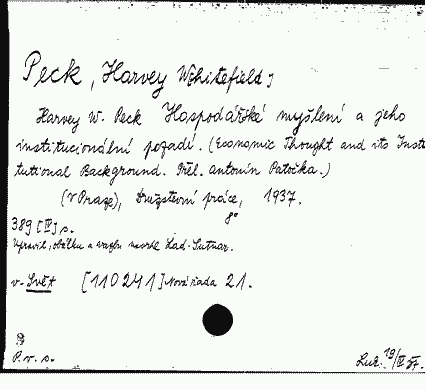 Peck, Harvey Whitefield,
Harvey W. Peck Hospodářské myšlení a jeho
institucionální pozadí. (Economic Thought and its Insti-
tutional Background. Přel. Antonín Patočka.)
(V Praze), Družstevní práce, 1937.
8°
389 [IV] s.
Upravil, obálku a vazbu navrhl Lad. Sutnar.
v. Svět [110241] Nová řada 21.
P. v. s.
Luk. 19/